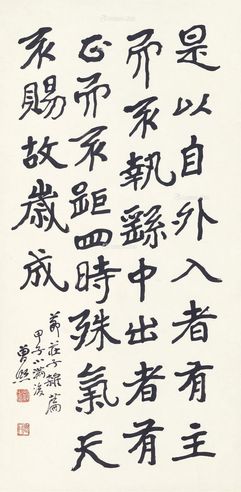 是以自外入者有主
而不執繇中出者有
正而不距四時殊氣天
不賜故歲成
節莊子雜篇
甲子小滿後
曾熙